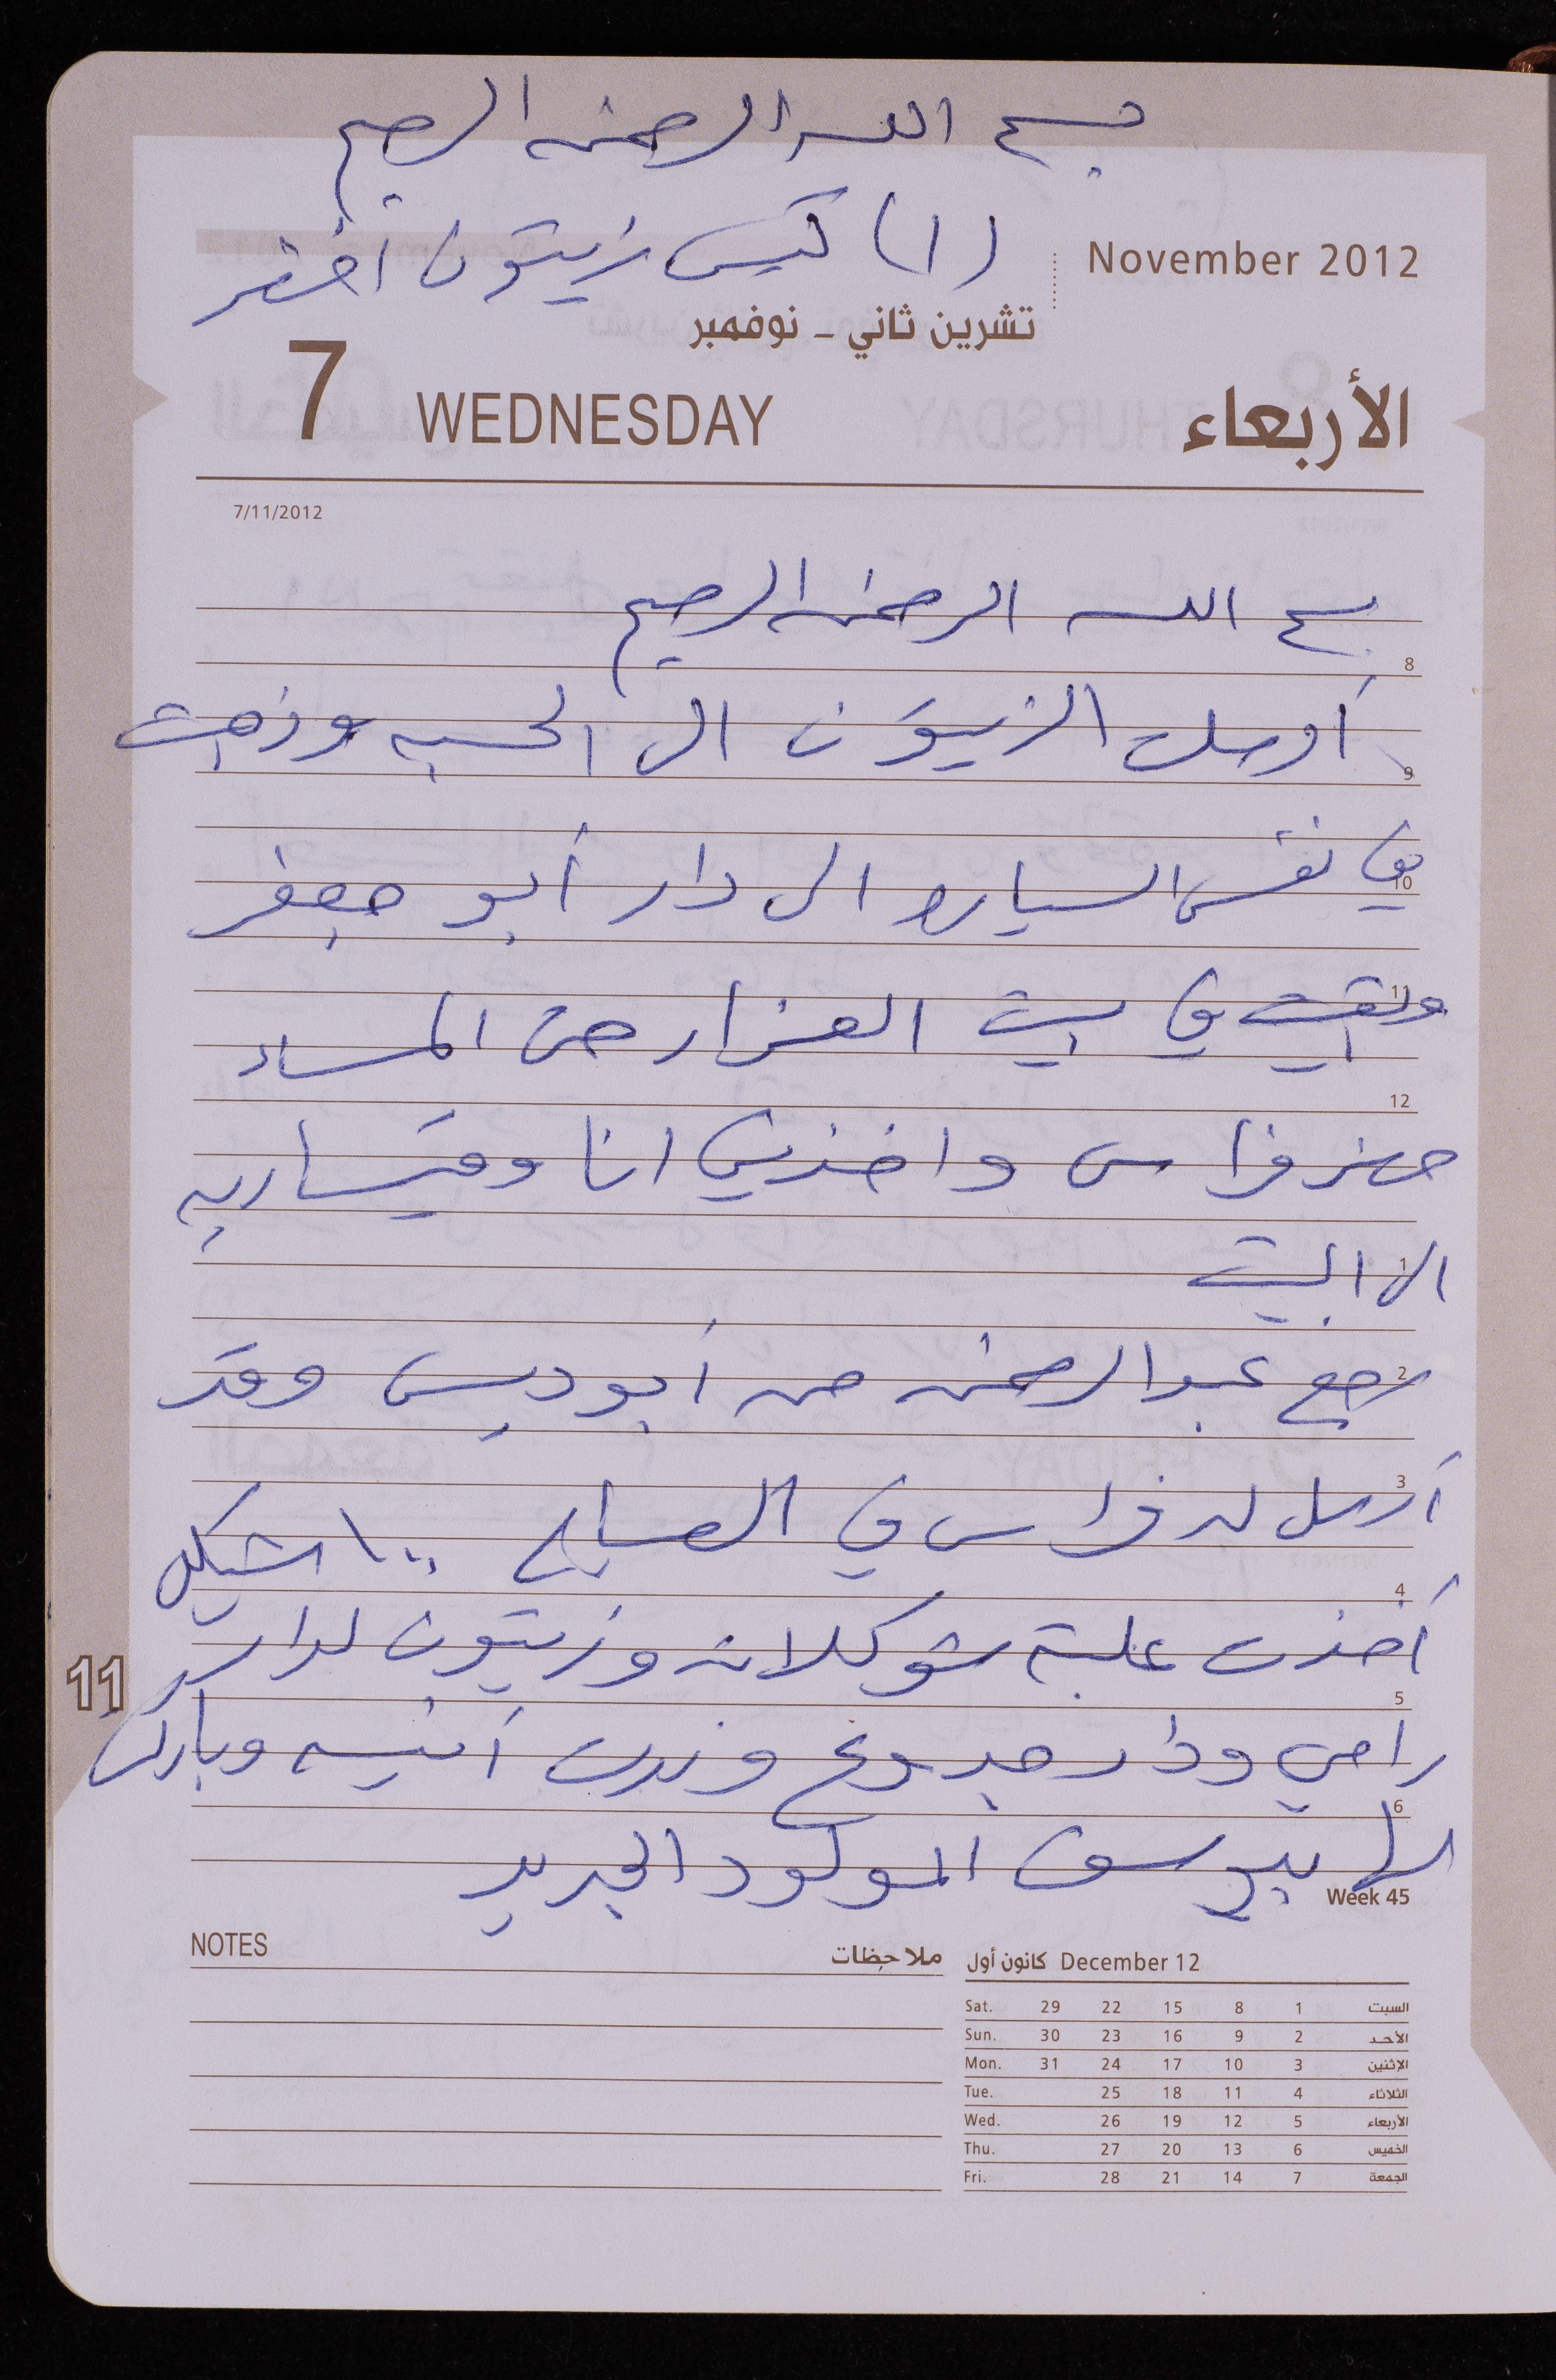 بسم الله الرحمن الرحيم
(١) كيس زيتون أخضر
November 2012
تشرين ثاني - نوفمبر
7 WEDNESDAY الأربعاء
7/11/2012
بسم الله الرحمن الرحيم
8
أرسل الزيتون الى الحسبه وذهبت
9
في نفس السياره الى دار أبو جعفر
10
وبقيت في بيت العزاء حتى المساء
11
12
حضر فراس واخذني انا وقيساريه
الى البيت
1
رجع عبد الرحمن من أبوديس وقد
2
أرسل له فراس في الصباح ١٠٠ شيكل
3
4
أخذت علبة شوكلاته وزيتون لدار
5
رامي ودار جدوع وزرت أنيسه وباركت
6
لها بيوسف المولود الجديد
Week 45
11
NOTES ملاحظات
كانون أول December 12
Sat. 29 22 15 8 1 السبت
Sun. 30 23 16 9 2 الأحد
Mon. 31 24 17 10 3 الإثنين
Tue. 25 18 11 4 الثلاثاء
Wed. 26 19 12 5 الأربعاء
Thu. 27 20 13 6 الخميس
Fri. 28 21 14 7 الجمعة